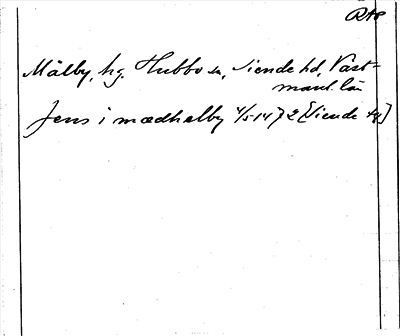 RAP
Mälby, hg. Hubbo sn, Siende hd, Väst-
manl. län
Jens i mædhelby 4/5 1472 [Siende